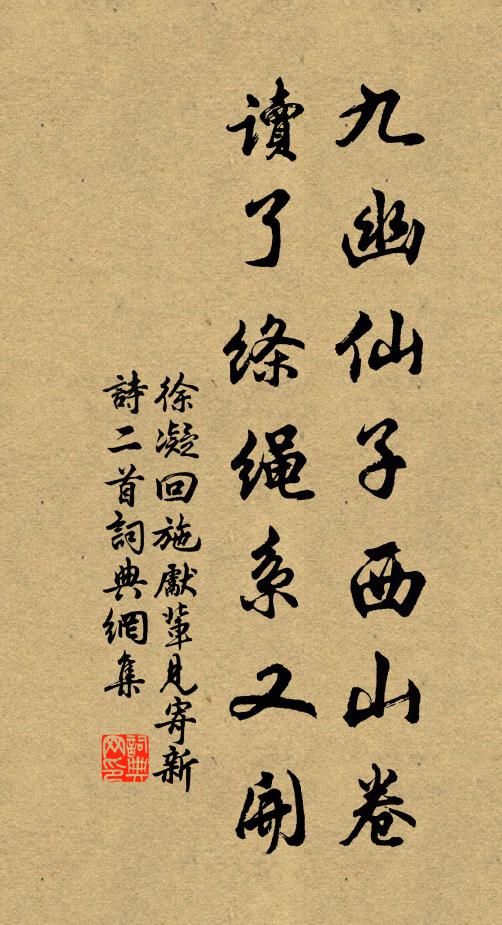 九幽仙子西山卷
讀了絳繩系又開
徐凝回施獻輩見寄新
詩二首詞典網集
詞典
网印